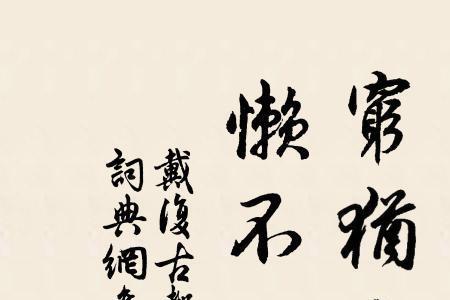 窮猶
懶不
戴復古
詞典網